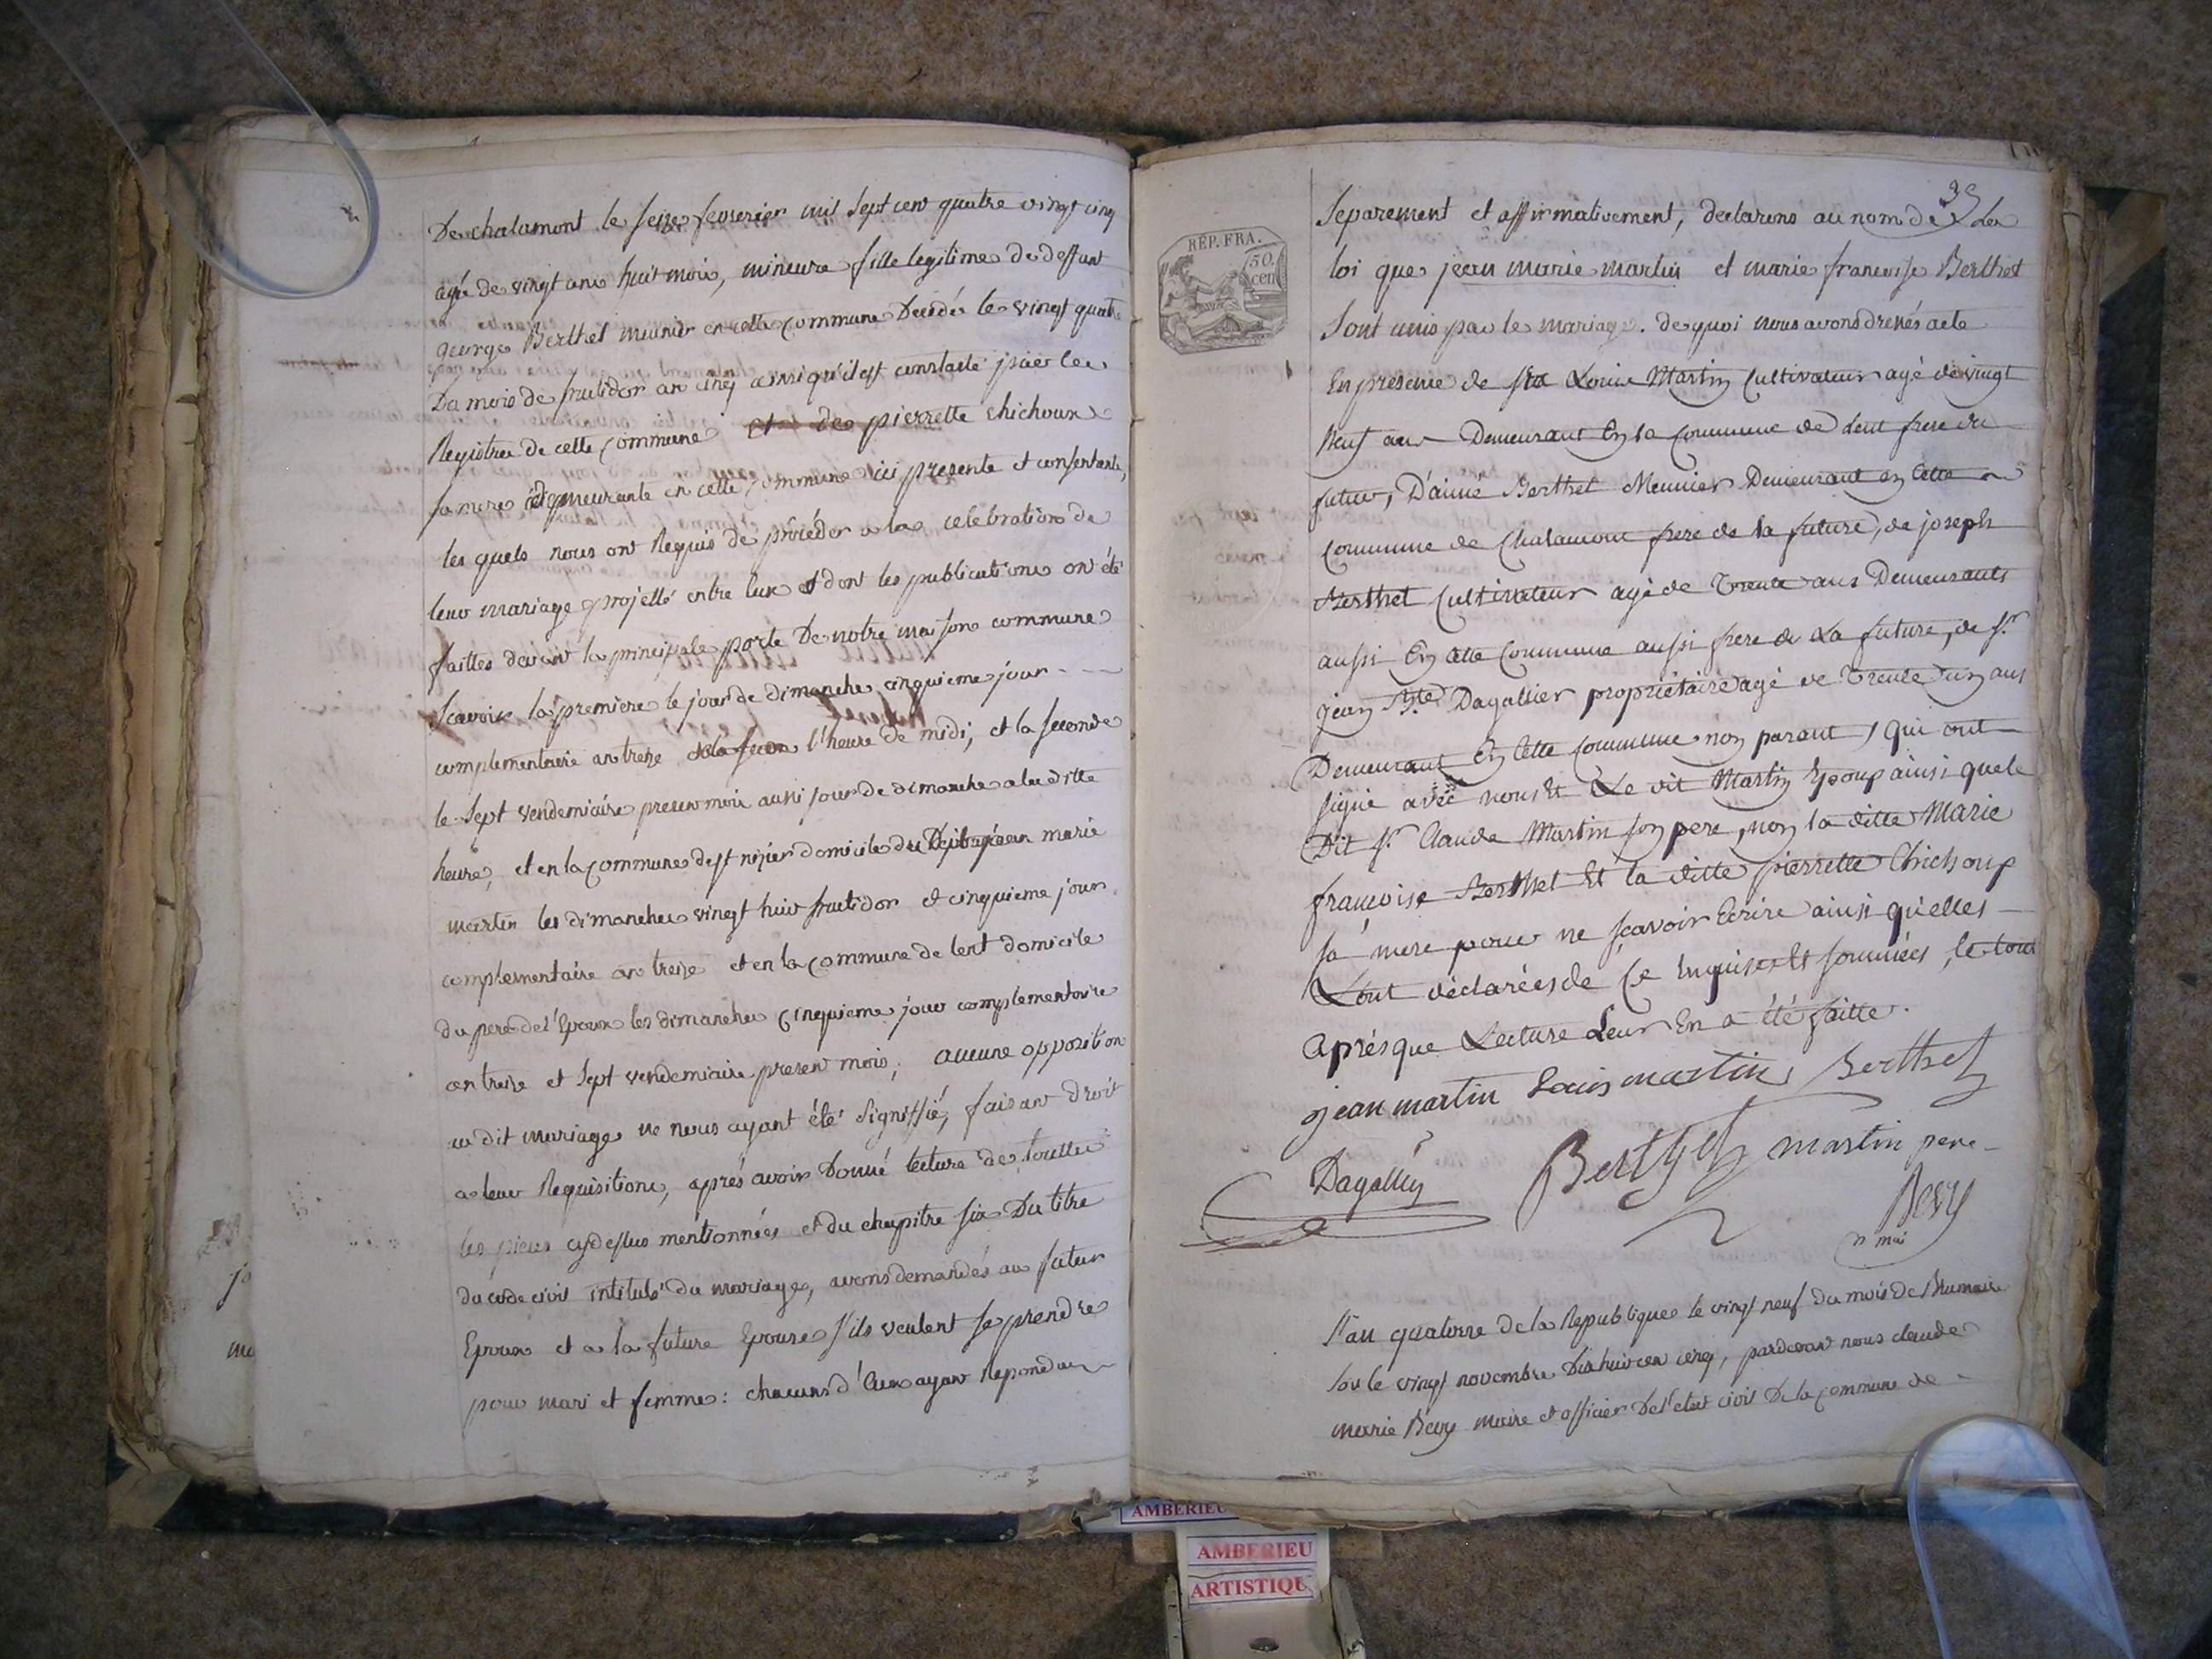 De chalamont le seize fevrerier mil sept cent quatre vingt cinq
agée de vingt ans huit mois, mineure fille legitime de deffunt
george Berthet meunier en cette commune Decédé le vingt quatre
Du mois de frutidor an cinq ainsi qu'il est constaté par les
Registres de cette commune et de pierrette chichoux
sa mere demeurante en cette commune ici presente et consentante,
les quels nous ont Requis de procéder a la celebration de
leur mariage projetté entre eux et dont les publications ont été
faittes devant la principale porte De notre maison commune
scavoir la premiere le jour de dimanche cinquieme jour
complementaire an treize l'heure de midi, et la seconde
le sept vendemiaire present mois aussi jour de dimanche a la ditte
heure, et en la commune de st nizier domicile du jean marie
martin les dimanches vingt huit fructidor et cinquieme jour
complementaire an treize et en la commune de lent domicile
du pere de l'Epoux les dimanches cinquieme jour complementaire
an treize et sept vendemiaire present mois, aucune opposition
au dit mariage ne nous ayant été signiffié, faisant droit
a leur Requisitions, aprés avoir Donné lecture de toutte
les pieces cydessus mentionnées et du chapitre six Du titre
du code civil intitulé du mariage, avons demandés au futur
Epoux et a la future Epouse s'ils veulent se prendre
pour mari et femme: chacuns d'Eux ayant Repondu
35
Separement et affirmativement, declarons au nom de la
loi que jean marie martin et marie francoise Berthet
Sont unis par le mariage. de quoi nous avons dressés acte
En presence de Louis Martin Cultivateur agé de vingt
Neuf ans Demeurant En la Commune de Lent frere du
futur, D'aimé Berthet Meunier Demeurant en Cette
Commune de Chalamont frere de la future, de joseph
Berthet Cultivateur agé de Trente ans Demeurants
aussi En cette Commune aussi frere de La future, de sr.
jean Bte. Dagallier propriétaire agé de Trente un ans
Demeurant En Cette Commune non parant, qui ont
signé avec nous Et Le dit Martin Epoux ainsi que le
Dit sr. Claude Martin son pere, non la ditte Marie
françoise Berthet Et la ditte pierrette Chichoux
sa mere pour ne sçavoir Ecrire ainsi qu'elles
L'ont déclarées de Ce Enquises Et sommées, le tout
aprés que Lecture Leur En a été faitte.
jean martin Louis martin Berthet
Dagallier Berthet martin pere
Bevy
mai
L'an quatorze de la Republique le vingt neuf du mois de Brumaire
sou le vingt novembre Dixhuit cen cinq, pardevant nous claude
marie Bevy maire et officier De l'etat civil De la commune de
RÉP. FRA.
50.
cen
AMBERIEU
AMBERIEU
ARTISTIQU